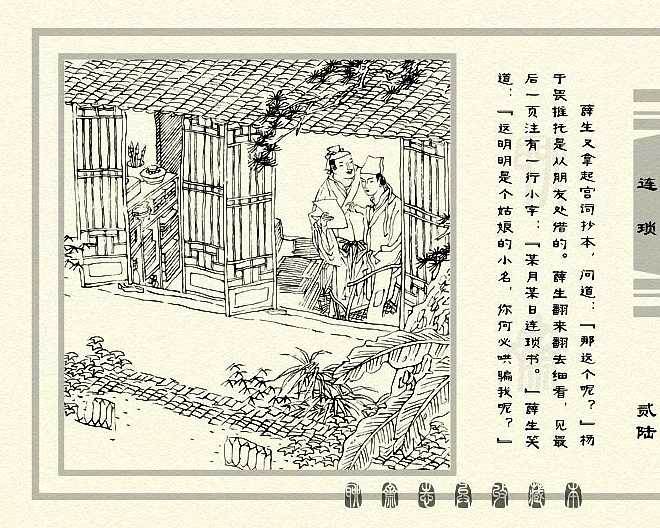 薛生又拿起宫词抄本，问道：「那这个呢？」杨
于畏推托是从朋友处借的。薛生翻来翻去细看，见最
后一页注有一行小字：「某月某日连琐书。」薛生笑
道：「这明明是个姑娘的小名，你何必哄骗我呢？」
连琐
贰陆